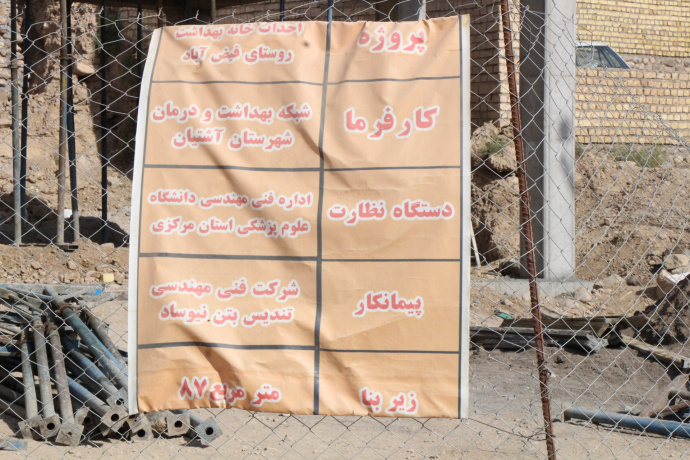 پروژه
احداث خانه بهداشت
روستای فیض آباد
کارفرما
شبکه بهداشت و درمان
شهرستان آشتیان
دستگاه نظارت
اداره فنی مهندسی دانشگاه
علوم پزشکی استان مرکزی
پیمانکار
شرکت فنی مهندسی
تندیس بتن نیوساد
زیر بنا
۸۷ متر مربع